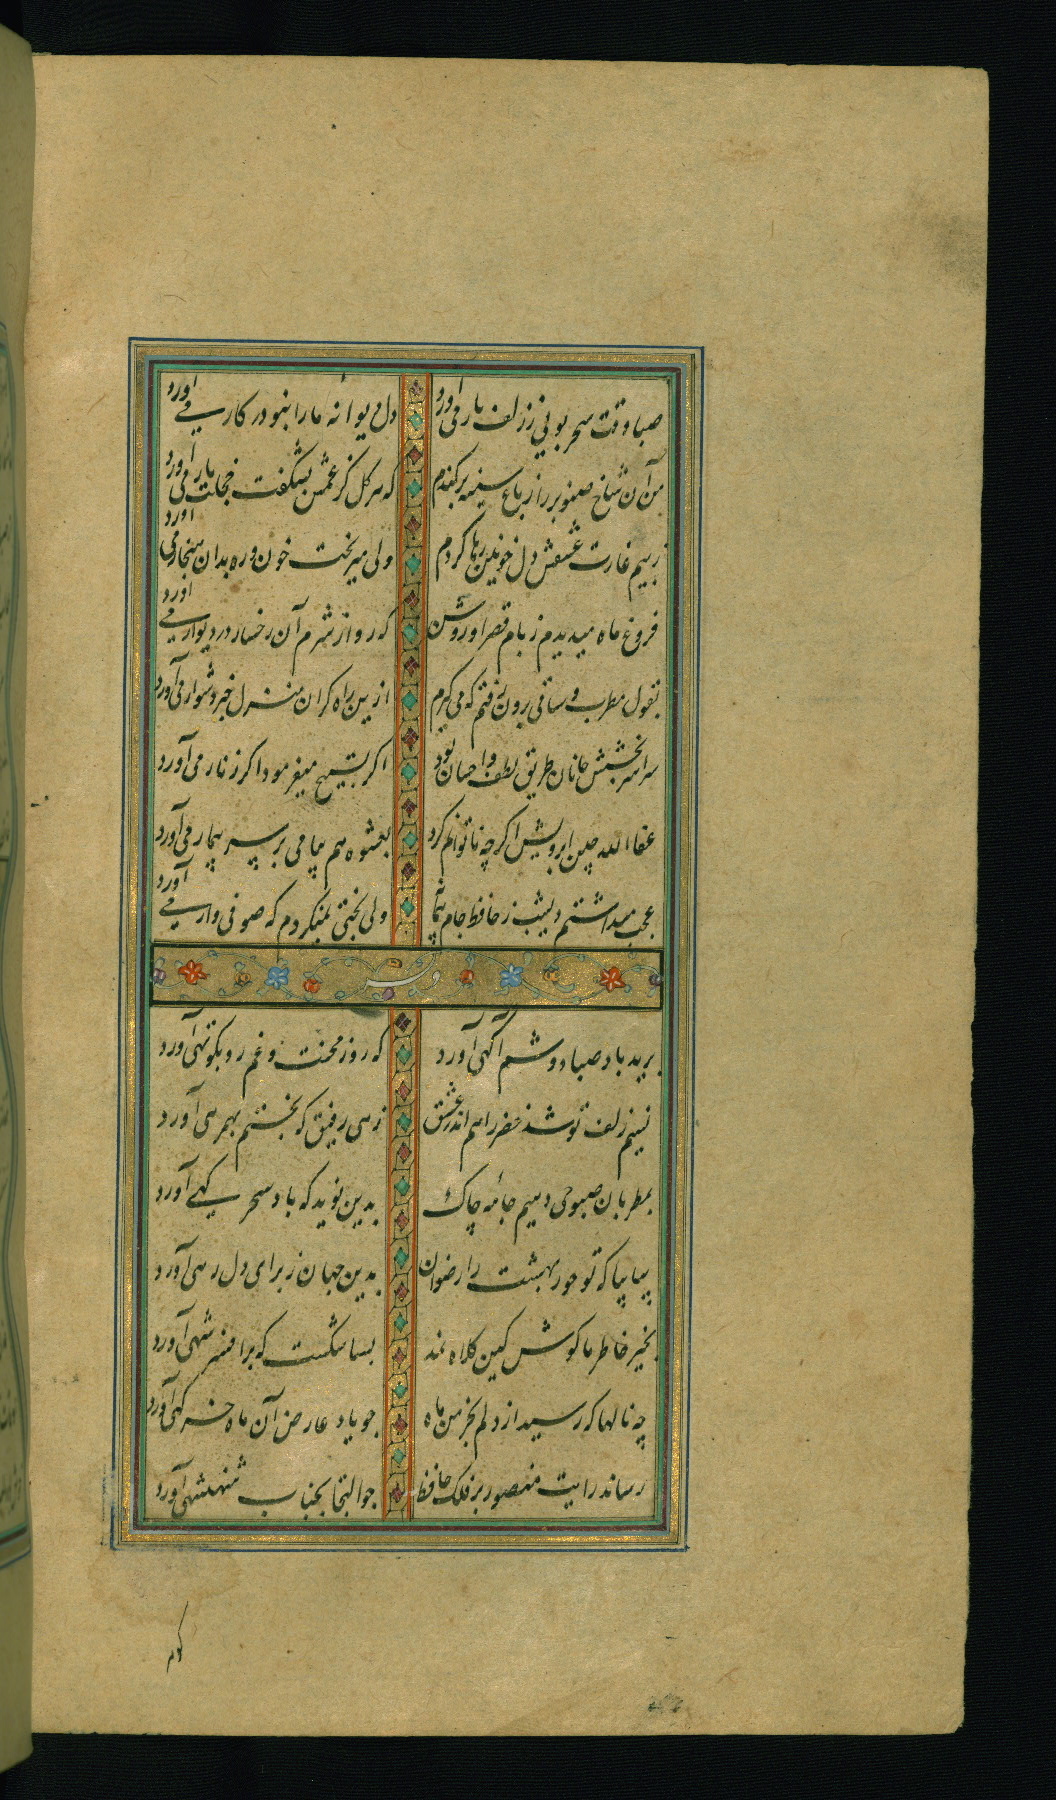 صبا وقت سحر بوئی ززلف یار می آورد دل دیوانه ما را بنو در کار می آورد
من آن شاخ صنوبر را ز باغ سینه برکندم که هر گل کز غمش بشکفت خجلت بار می آورد
ز بیم غارت عشقش دل خونین رها کردم ولی میریخت خون و ره بدان هنجار می آورد
فروغ ماه میدیدم ز بام قصر او روشن که رو از شرم آن رخسار در دیوار می آورد
بقول مطرب و ساقی برون رفتم که می گیرم ازین راه گران منزل خبر دشوار می آورد
سراسر بخشش جانان طریق لطف و احسان بود اگر تسبیح میفرمود اگر زنار می آورد
عفا الله چین ابرویش اگر چه ناتوانم کرد بعشوه هم پیامی بر سر بیمار می آورد
عجب میداشتم دیشب ز حافظ جام پیمانه ولی بحثی نمیکردم که صوفی وار می آورد
برید باد صبا دوشم آگهی آورد که روز محنت و غم رو بکوتهی آورد
نسیم زلف تو شد خضر راهم اندر عشق زهی رفیق که بختم بهمرهی آورد
بمطربان صبوحی دهیم جامه چاک بدین نوید که باد سحرگهی آورد
بیا بیا که تو حور بهشت را رضوان بدین جهان ز برای دل رهی آورد
بخیر خاطر ما کوش کین کلاه نمد بسا شکست که بر افسر شهی آورد
چه نالها که رسید از دلم بخرمن ماه چو یاد عارض آن ماه خرگهی آورد
رساند رایت منصور بر فلک حافظ چو التجا بجناب شهنشهی آورد